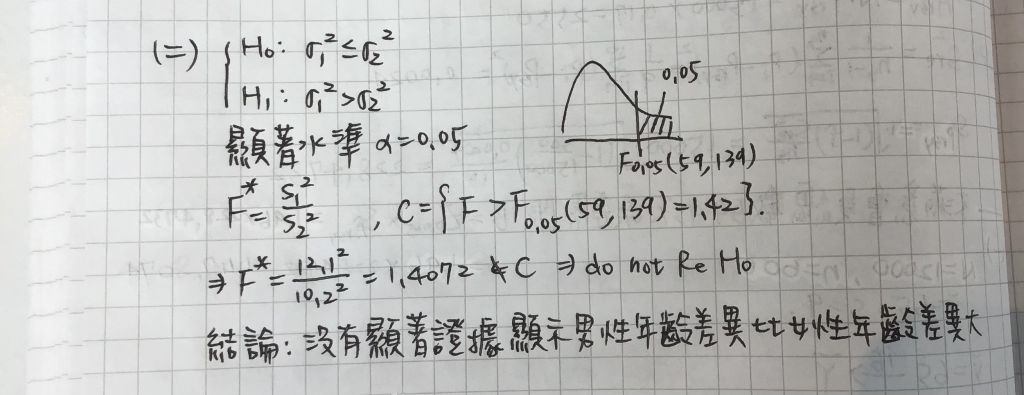 (二) { H₀: σ₁² ≤ σ₂²
H₁: σ₁² > σ₂²
0.05
顯著水準 α=0.05
F₀.₀₅(59,139)
F* = S₁²/S₂² , C={F > F₀.₀₅(59,139)=1.42}.
⇒ F* = 12.1²/10.2² = 1.4072 ∉ C ⇒ do not Re H₀
結論: 沒有顯著證據顯示男性年齡差異比女性年齡差異大